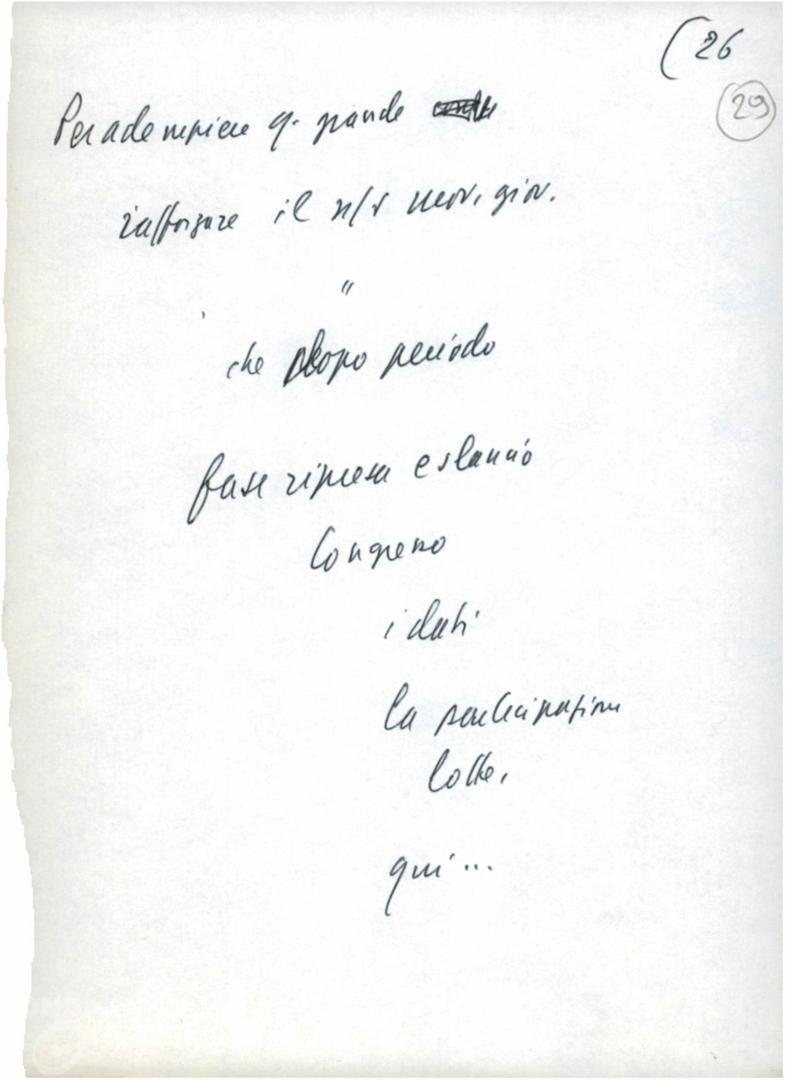 (26
29
Per adempiere q. grande
rafforzare il n/s mov. giov.
"
che dopo periodo
fase ripresa e slancio
Congresso
i dati
la partecipazione
lotte,
qui...